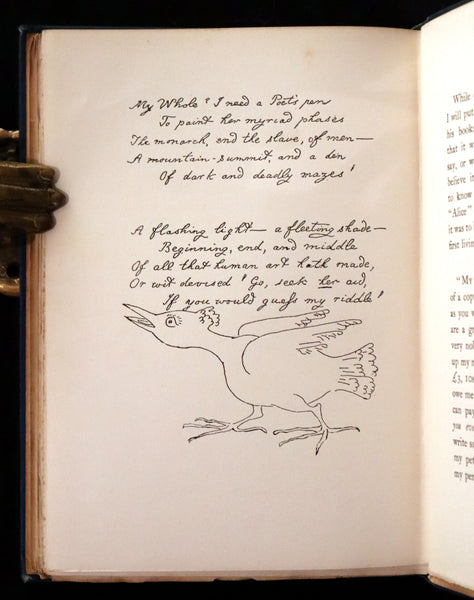 My Whole? I need a Poet's pen
To paint her myriad phases
The monarch, and the slave, of men—
A mountain-summit, and a den
Of dark and deadly mazes!
A flashing light— a fleeting shade—
Beginning, end, and middle
Of all that human art hath made,
Or wit devised! Go, seek her aid,
If you would guess my riddle!
While
I will put
his book
that it w
say, or w
believe it
to know
"Alice"
it was to
first living
"My
of a cop
as you w
are a gr
very nol
up my m
£3, 10s
owe me
can pay
you eve
write so
my pet
my pen